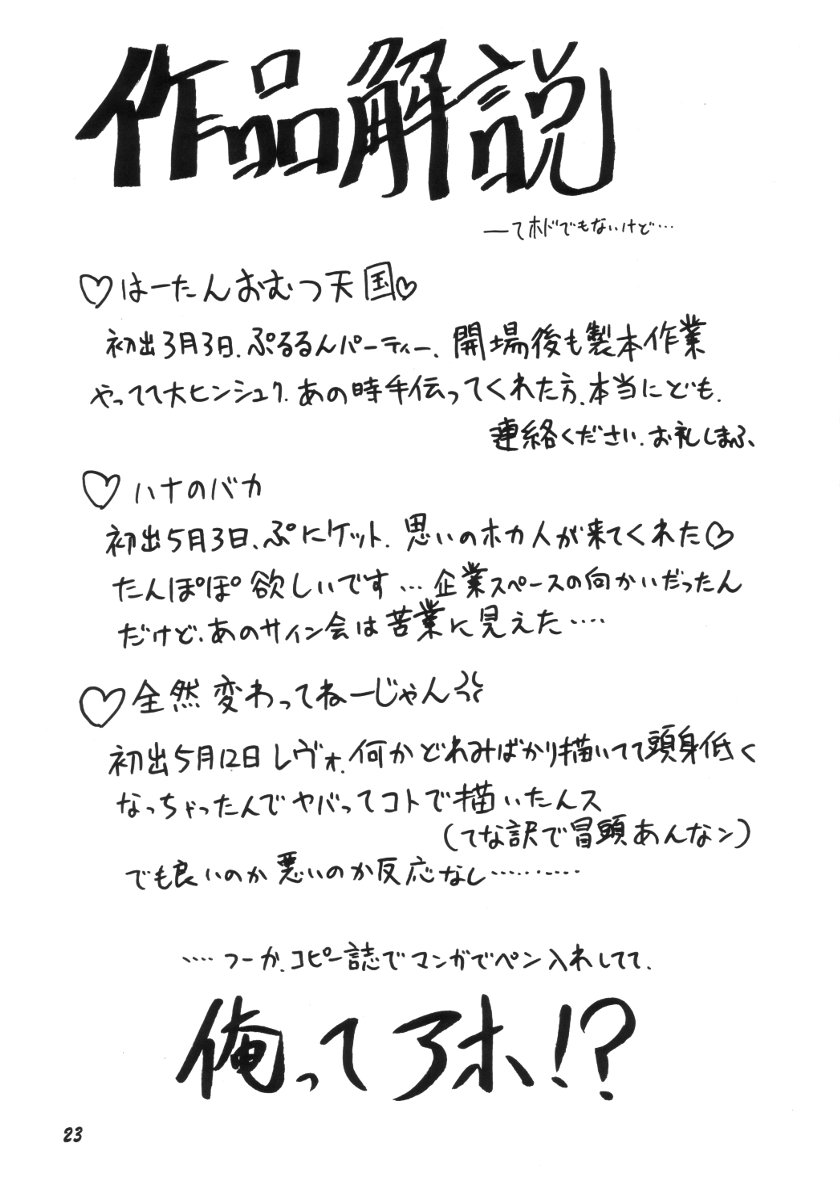 作品解説
―てホドでもないけど…
♡はーたんおむつ天国♡
初出3月3日、ぷるるんパーティー、開場後も製本作業
やってて大ヒンシュク。あの時手伝ってくれた方、本当にども。
連絡ください。お礼しまふ。
♡ハナのバカ
初出5月3日、ぷにケット。思いのホカ人が来てくれた♡
たんぽぽ欲しいです…企業スペースの向かいだったん
だけど、あのサイン会は苦業に見えた‥‥
♡全然変わってねーじゃん
初出5月12日レヴォ。何かどれみばかり描いてて頭身低く
なっちゃったんでヤバってコトで描いたんス
(てな訳で冒頭あんなン)
でも良いのか悪いのか反応なし………
‥‥つーか、コピー誌でマンガでペン入れしてて、
俺ってアホ!?
23